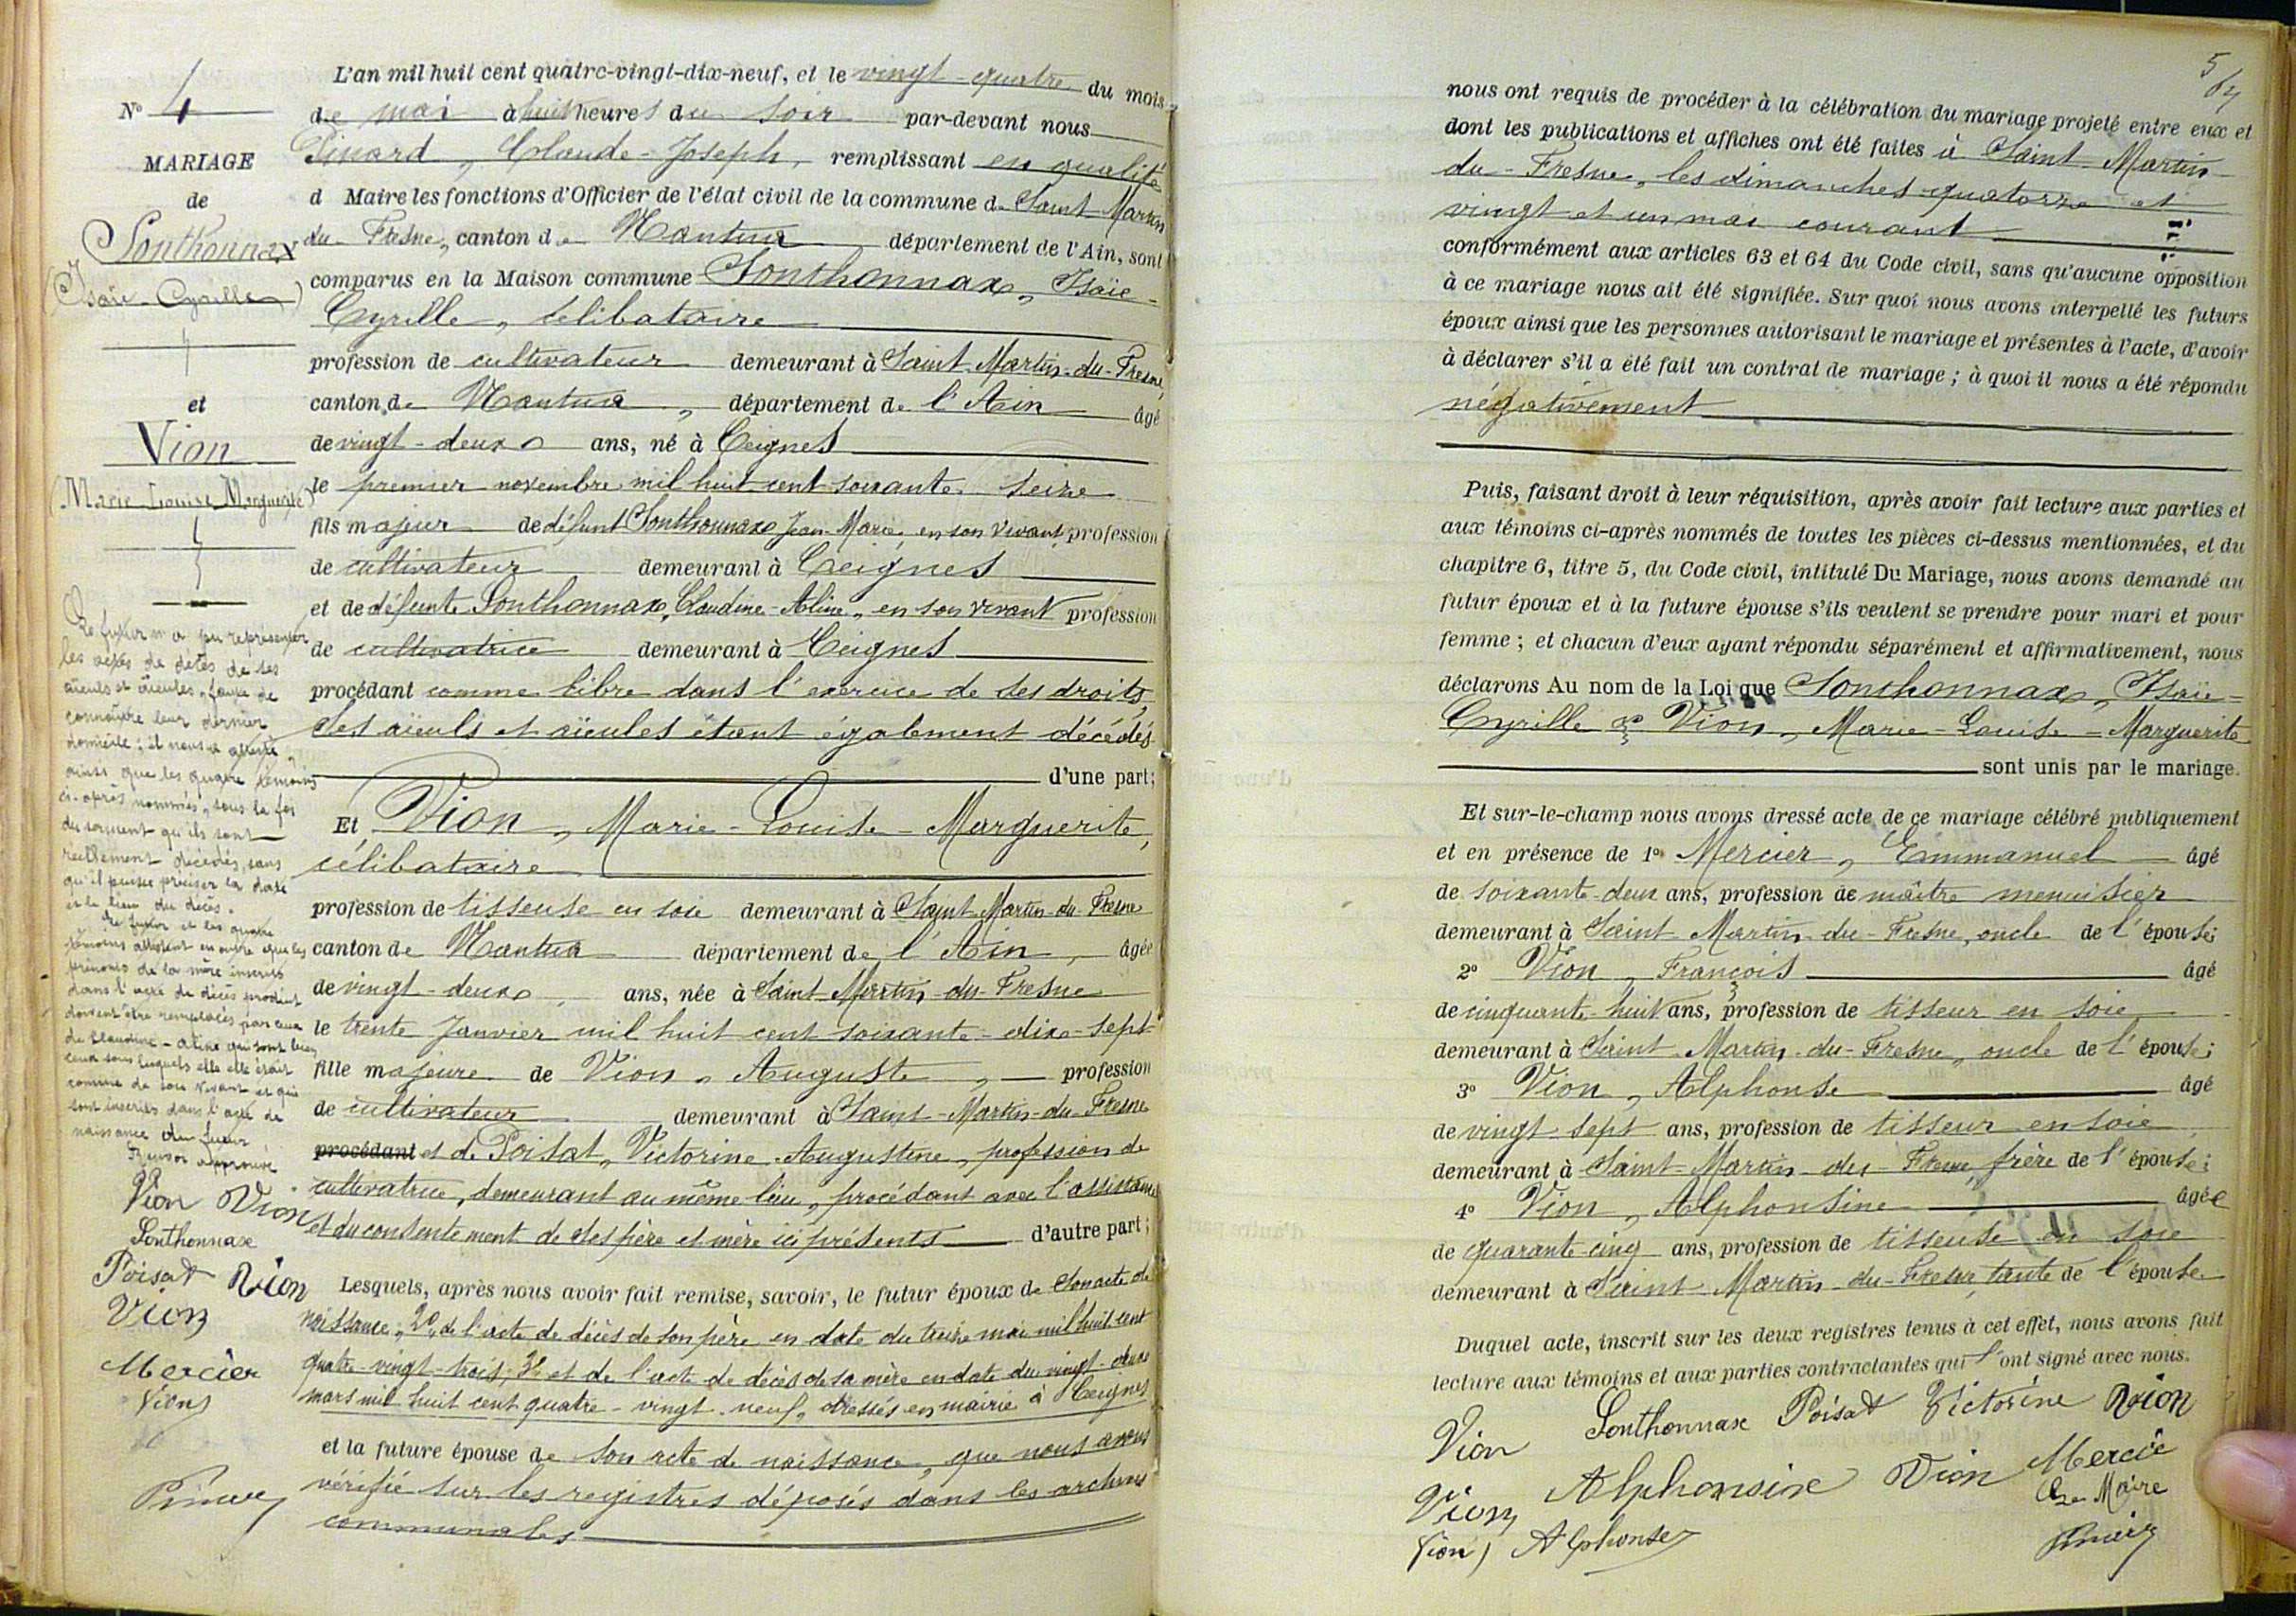 N° 4
MARIAGE
de
Sonthonnax
(Isaïe-Cyrille)
et
Vion
(Marie Louise Marguerite)
Le futur n'a pu représenter
les actes de décès de ses
aïeuls et aïeules, faute de
connaître leur dernier
domicile ; il nous a attesté,
ainsi que les quatre témoins
ci-après nommés, sous la foi
du serment qu'ils sont
réellement décédés, sans
qu'il puisse préciser la date
et le lieu du décès.
Le futur et les quatre
témoins attestent en outre que les
prénoms de la mère inscrits
dans l'acte de décès produit
doivent être remplacés par ceux
de Claudine-Aline qui sont bien
ceux sous lesquels elle était
connue de son vivant et qui
sont inscrits dans l'acte de
naissance du futur
Renvoi approuvé
Vion Vion
Sonthonnax
Poisat Vion
Vion
Mercier
Vion
L'an mil huit cent quatre-vingt-dix-neuf, et le vingt-quatre du mois
de mai à huit heures du soir par-devant nous
Pinard, Claude-Joseph, remplissant en qualité
d Maire les fonctions d'Officier de l'état civil de la commune de Saint-Martin
du-Fresne, canton de Nantua département de l'Ain, sont
comparus en la Maison commune Sonthonnax, Isaïe-
Cyrille, célibataire
profession de cultivateur demeurant à Saint-Martin-du-Fresne,
canton de Nantua, département de l'Ain âgé
de vingt-deux ans, né à Ceignes
le premier novembre mil huit cent soixante-seize
fils majeur de défunt Sonthonnax Jean-Marie, en son vivant, profession
de cultivateur demeurant à Ceignes
et de défunte Sonthonnax, Claudine-Aline, en son vivant profession
de cultivatrice demeurant à Ceignes
procédant comme libre dans l'exercice de ses droits,
ses aïeuls et aïeules étant également décédés
d'une part;
Et Vion, Marie-Louise-Marguerite,
célibataire
profession de tisseuse en soie demeurant à Saint-Martin-du-Fresne
canton de Nantua département de l'Ain, âgée
de vingt-deux ans, née à Saint-Martin-du-Fresne
le trente Janvier mil huit cent soixante-dix-sept
fille majeure de Vion, Auguste, profession
de cultivateur demeurant à Saint-Martin-du-Fresne
procédant et de Poisat, Victorine-Augustine, profession de
cultivatrice, demeurant au même lieu, procédant avec l'assistance
et du consentement de ses père et mère ici présents d'autre part;
Lesquels, après nous avoir fait remise, savoir, le futur époux de son acte de
naissance, 2° de l'acte de décès de son père en date du treize mai mil huit cent
quatre-vingt-trois; 3° et de l'acte de décès de sa mère en date du vingt-deux
mars mil huit cent quatre-vingt-neuf, dressés en mairie à Ceignes
et la future épouse de son acte de naissance, que nous avons
vérifié sur les registres déposés dans les archives
communales
5
nous ont requis de procéder à la célébration du mariage projeté entre eux et
dont les publications et affiches ont été faites à Saint-Martin-
du-Fresne, les dimanches quatorze et
vingt et un mai courant
conformément aux articles 63 et 64 du Code civil, sans qu'aucune opposition
à ce mariage nous ait été signifiée. Sur quoi nous avons interpellé les futurs
époux ainsi que les personnes autorisant le mariage et présentes à l'acte, d'avoir
à déclarer s'il a été fait un contrat de mariage ; à quoi il nous a été répondu
négativement
Puis, faisant droit à leur réquisition, après avoir fait lecture aux parties et
aux témoins ci-après nommés de toutes les pièces ci-dessus mentionnées, et du
chapitre 6, titre 5, du Code civil, intitulé Du Mariage, nous avons demandé au
futur époux et à la future épouse s'ils veulent se prendre pour mari et pour
femme ; et chacun d'eux ayant répondu séparément et affirmativement, nous
déclarons Au nom de la Loi que Sonthonnax, Isaïe-
Cyrille & Vion, Marie-Louise-Marguerite
sont unis par le mariage.
Et sur-le-champ nous avons dressé acte de ce mariage célébré publiquement
et en présence de 1° Mercier, Emmanuel âgé
de soixante-deux ans, profession de maître menuisier
demeurant à Saint-Martin-du-Fresne, oncle de l'épouse;
2° Vion, François âgé
de cinquante-huit ans, profession de tisseur en soie
demeurant à Saint-Martin-du-Fresne, oncle de l'épouse;
3° Vion, Alphonse âgé
de vingt-sept ans, profession de tisseur en soie
demeurant à Saint-Martin-du-Fresne, frère de l'épouse;
4° Vion, Alphonsine âgée
de quarante-cinq ans, profession de tisseuse en soie
demeurant à Saint-Martin-du-Fresne, tante de l'épouse.
Duquel acte, inscrit sur les deux registres tenus à cet effet, nous avons fait
lecture aux témoins et aux parties contractantes qui l'ont signé avec nous.
Vion Sonthonnax Poisat Victorine Vion
Vion Alphonsine Vion Mercier
Le Maire
Vion Alphonse